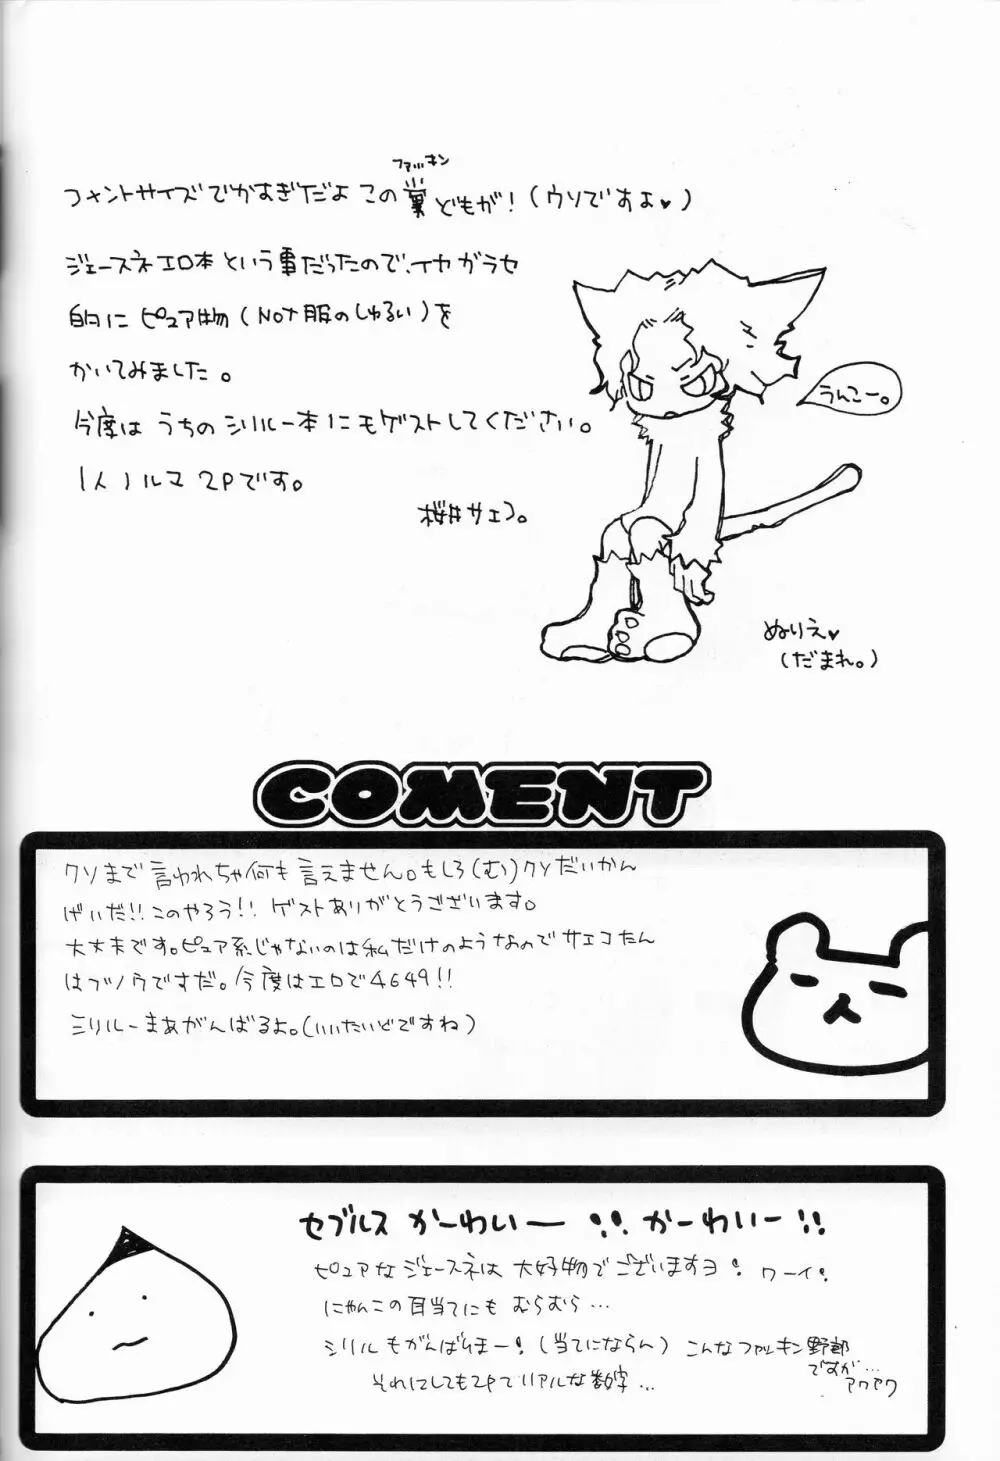 ファッキン
フォントサイズでかすぎだよ この糞どもが!(ウソですよ♥)
ジェースネエロ本という事だったので、イヤガラセ
的にピュア物(NOT服のしゅるい)を
かいてみました。
今度はうちのシリルー本にもゲストしてください。
1人ノルマ2Pです。
桜井サエコ。
うんこー。
ぬりえ♥
(だまれ。)
COMENT
クソまで言われちゃ何も言えません。もしろ(む)クソだいかん
げいだ!!このやろう!!ゲストありがとうございます。
大丈夫です。ピュア系じゃないのは私だけのようなのでサエコたん
はブノウですだ。今度はエロで4649!!
シリルーまあがんばるよ。(いいたいどですね)
セブルス かーわいー!!かーわいー!!
ピュアなジェースネは大好物でございますヨ!ワーイ!
にゃんこの耳当てにもむらむら…
シリルもがんばりまー!(当てにならん)こんなファッキン野郎
ですが…
アワアワ
それにしても2Pてリアルな数字…